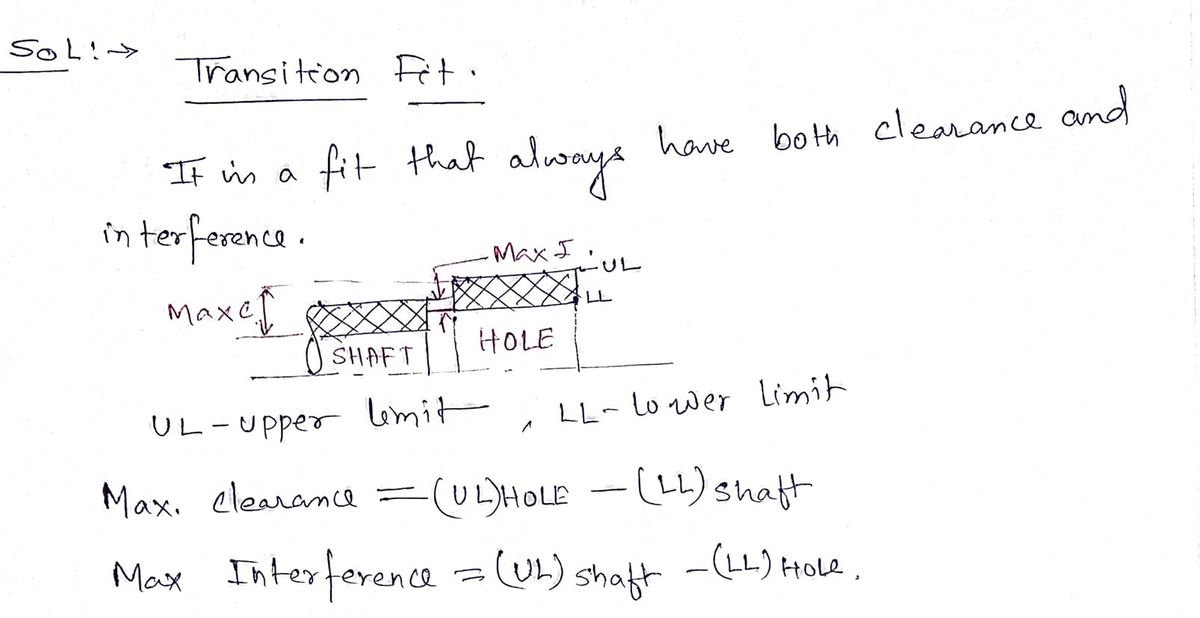 SOL:→
Transition Fit.
It is a fit that always have both clearance and
interference.
Max I
UL
Max C
LL
SHAFT
HOLE
UL - upper limit, LL - lower limit
Max. clearance = (UL)HOLE - (LL) shaft
Max Interference = (UL) shaft - (LL) HOLE.